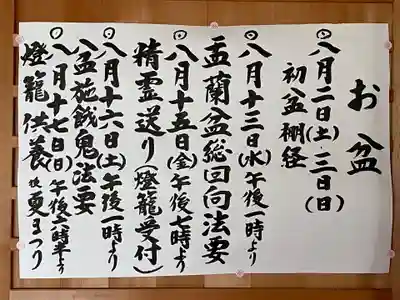 お盆
◎八月二日(土)三日(日)
初盆棚経
◎八月十三日(水)午後一時より
盂蘭盆総回向法要
◎八月十五日(金)午後七時より
精霊送り(燈籠受付)
◎八月十六日(土)午後一時より
八盆施餓鬼法要
◎八月十七日(日)午後六時半より
燈籠供養